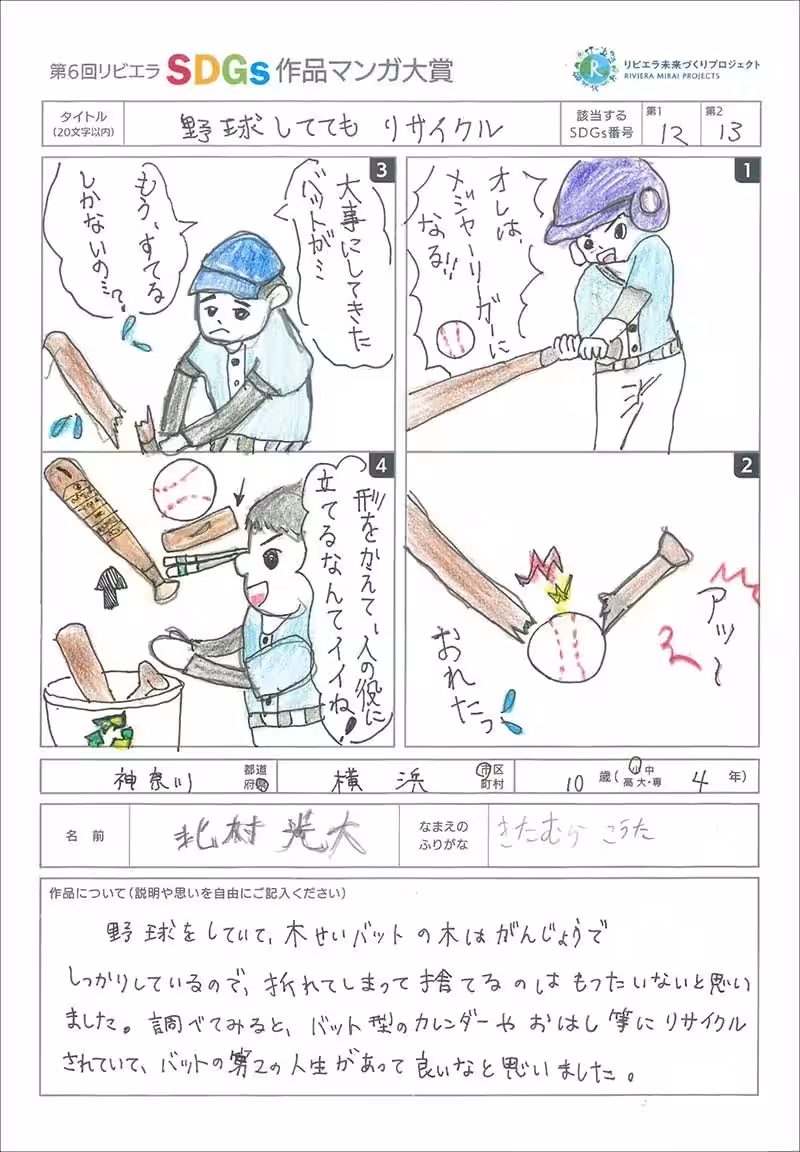 第6回リビエラ SDGs 作品マンガ大賞
リビエラ未来づくりプロジェクト
RIVIERA MIRAI PROJECTS
タイトル
(20文字以内)
野球してても リサイクル
該当する
SDGs番号
第1
12
第2
13
1
オレは、
メジャーリーガーに
なる!!
2
アッ〜
おれたっ
3
大事にしてきた
バットが…
もう、すてる
しかないの…?
4
形をかえて、人の役に
立てるなんてイイね!
神奈川
都道
府県
横浜
市区
町村
10 歳(小・中
高・大・専 4 年)
名前
北村 光大
なまえの
ふりがな
きたむら こうた
作品について(説明や思いを自由にご記入ください)
野球をしていて、木せいバットの木はがんじょうで
しっかりしているので、折れてしまって捨てるのはもったいないと思い
ました。調べてみると、バット型のカレンダーやおはし等にリサイクル
されていて、バットの第2の人生があって良いなと思いました。